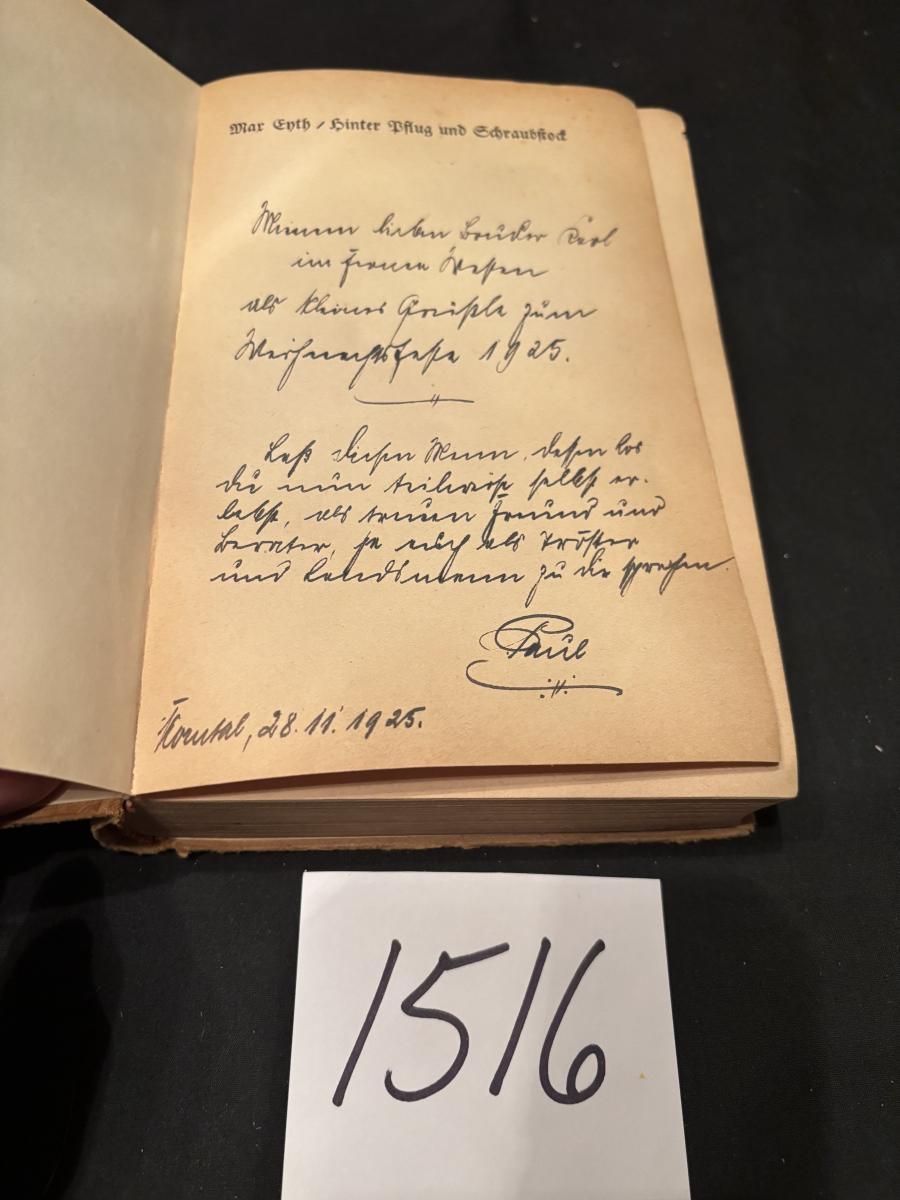 Max Eyth / Hinter Pflug und Schraubstock
Meinem lieben Bruder Karl
im fernen Westen
als kleines Grüßle zum
Weihnachtsfeste 1925.
Laß diesen Mann, dessen Los
du nun teilweise selbst er-
lebst, als treuen Freund und
Berater, ja auch als Tröster
und Landsmann zu dir sprechen.
Paul
Korntal, 28. 11. 1925.
1516